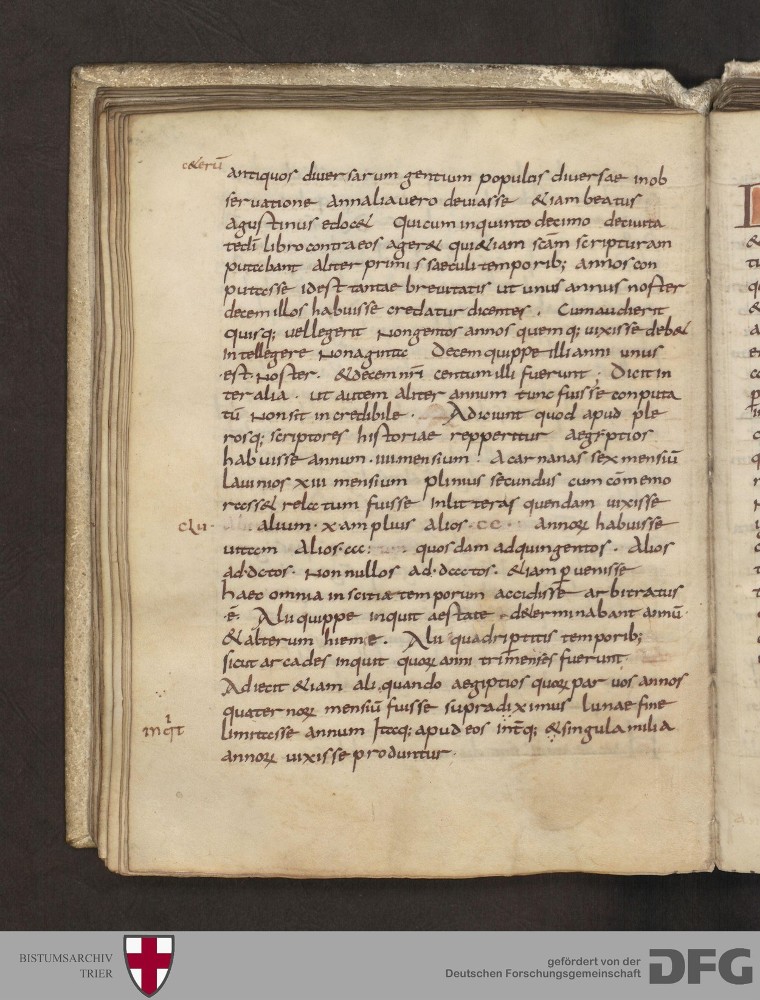 ceterū
antiquos diuersarum gentium populos diuersae inob
seruatione annalia uero deuiasse & iam beatus
agustinus edoc& Qui cum in quinto decimo deciuita
te dī libro contra eos ager& qui &iam scām scripturam
putabant aliter primis saeculi temporib; annos con
putasse id est tantae breuitatis ut unus annus noster
decem illos habuisse credatur dicentes. Cum audierit
quisq; uel legerit nongentos annos quemq; uixisse deb&
intellegere nonaginta Decem quippe illi anni unus
·est· noster· & decem nrī centum illi fuerunt· Dicit in
ter alia· ut autem aliter annum tunc fuisse conputa
tū non sit incredibile· Adiciunt quod apud ple
rosq; scriptores historiae repperitur aegyptios
habuisse annum ·IIII· mensium· Acarnanas sex mensiū
lauinios XIII mensium plinius secundus cum cōmemo
rass& relatum fuisse in litteras quendam uixisse
clii·
alium· X· amplius alios ·CC· annoꝝ habuisse
uitam Alios ·CCC· quosdam ad quingentos· Alios
ad ·dctos· nonnullos ad ·dccctos· &iam ꝑuenisse
haec omnia inscitia temporum accidisse arbitratus
·ē· Alii quippe inquit aestate d&erminabant annū
& alterum hieme· Alii quadripertitis temporib;
sicut arcades inquit quoꝝ anni trimenses fuerunt
Adiecit &iam aliquando aegiptios quoꝝ paruos annos
quaternoꝝ mensiū fuisse supra diximus lunae fine
inqͥt
limitasse annum Itaq; apud eos & singula milia
annoꝝ uixisse produntur·
BISTUMSARCHIV
TRIER
gefördert von der
Deutschen Forschungsgemeinschaft
DFG